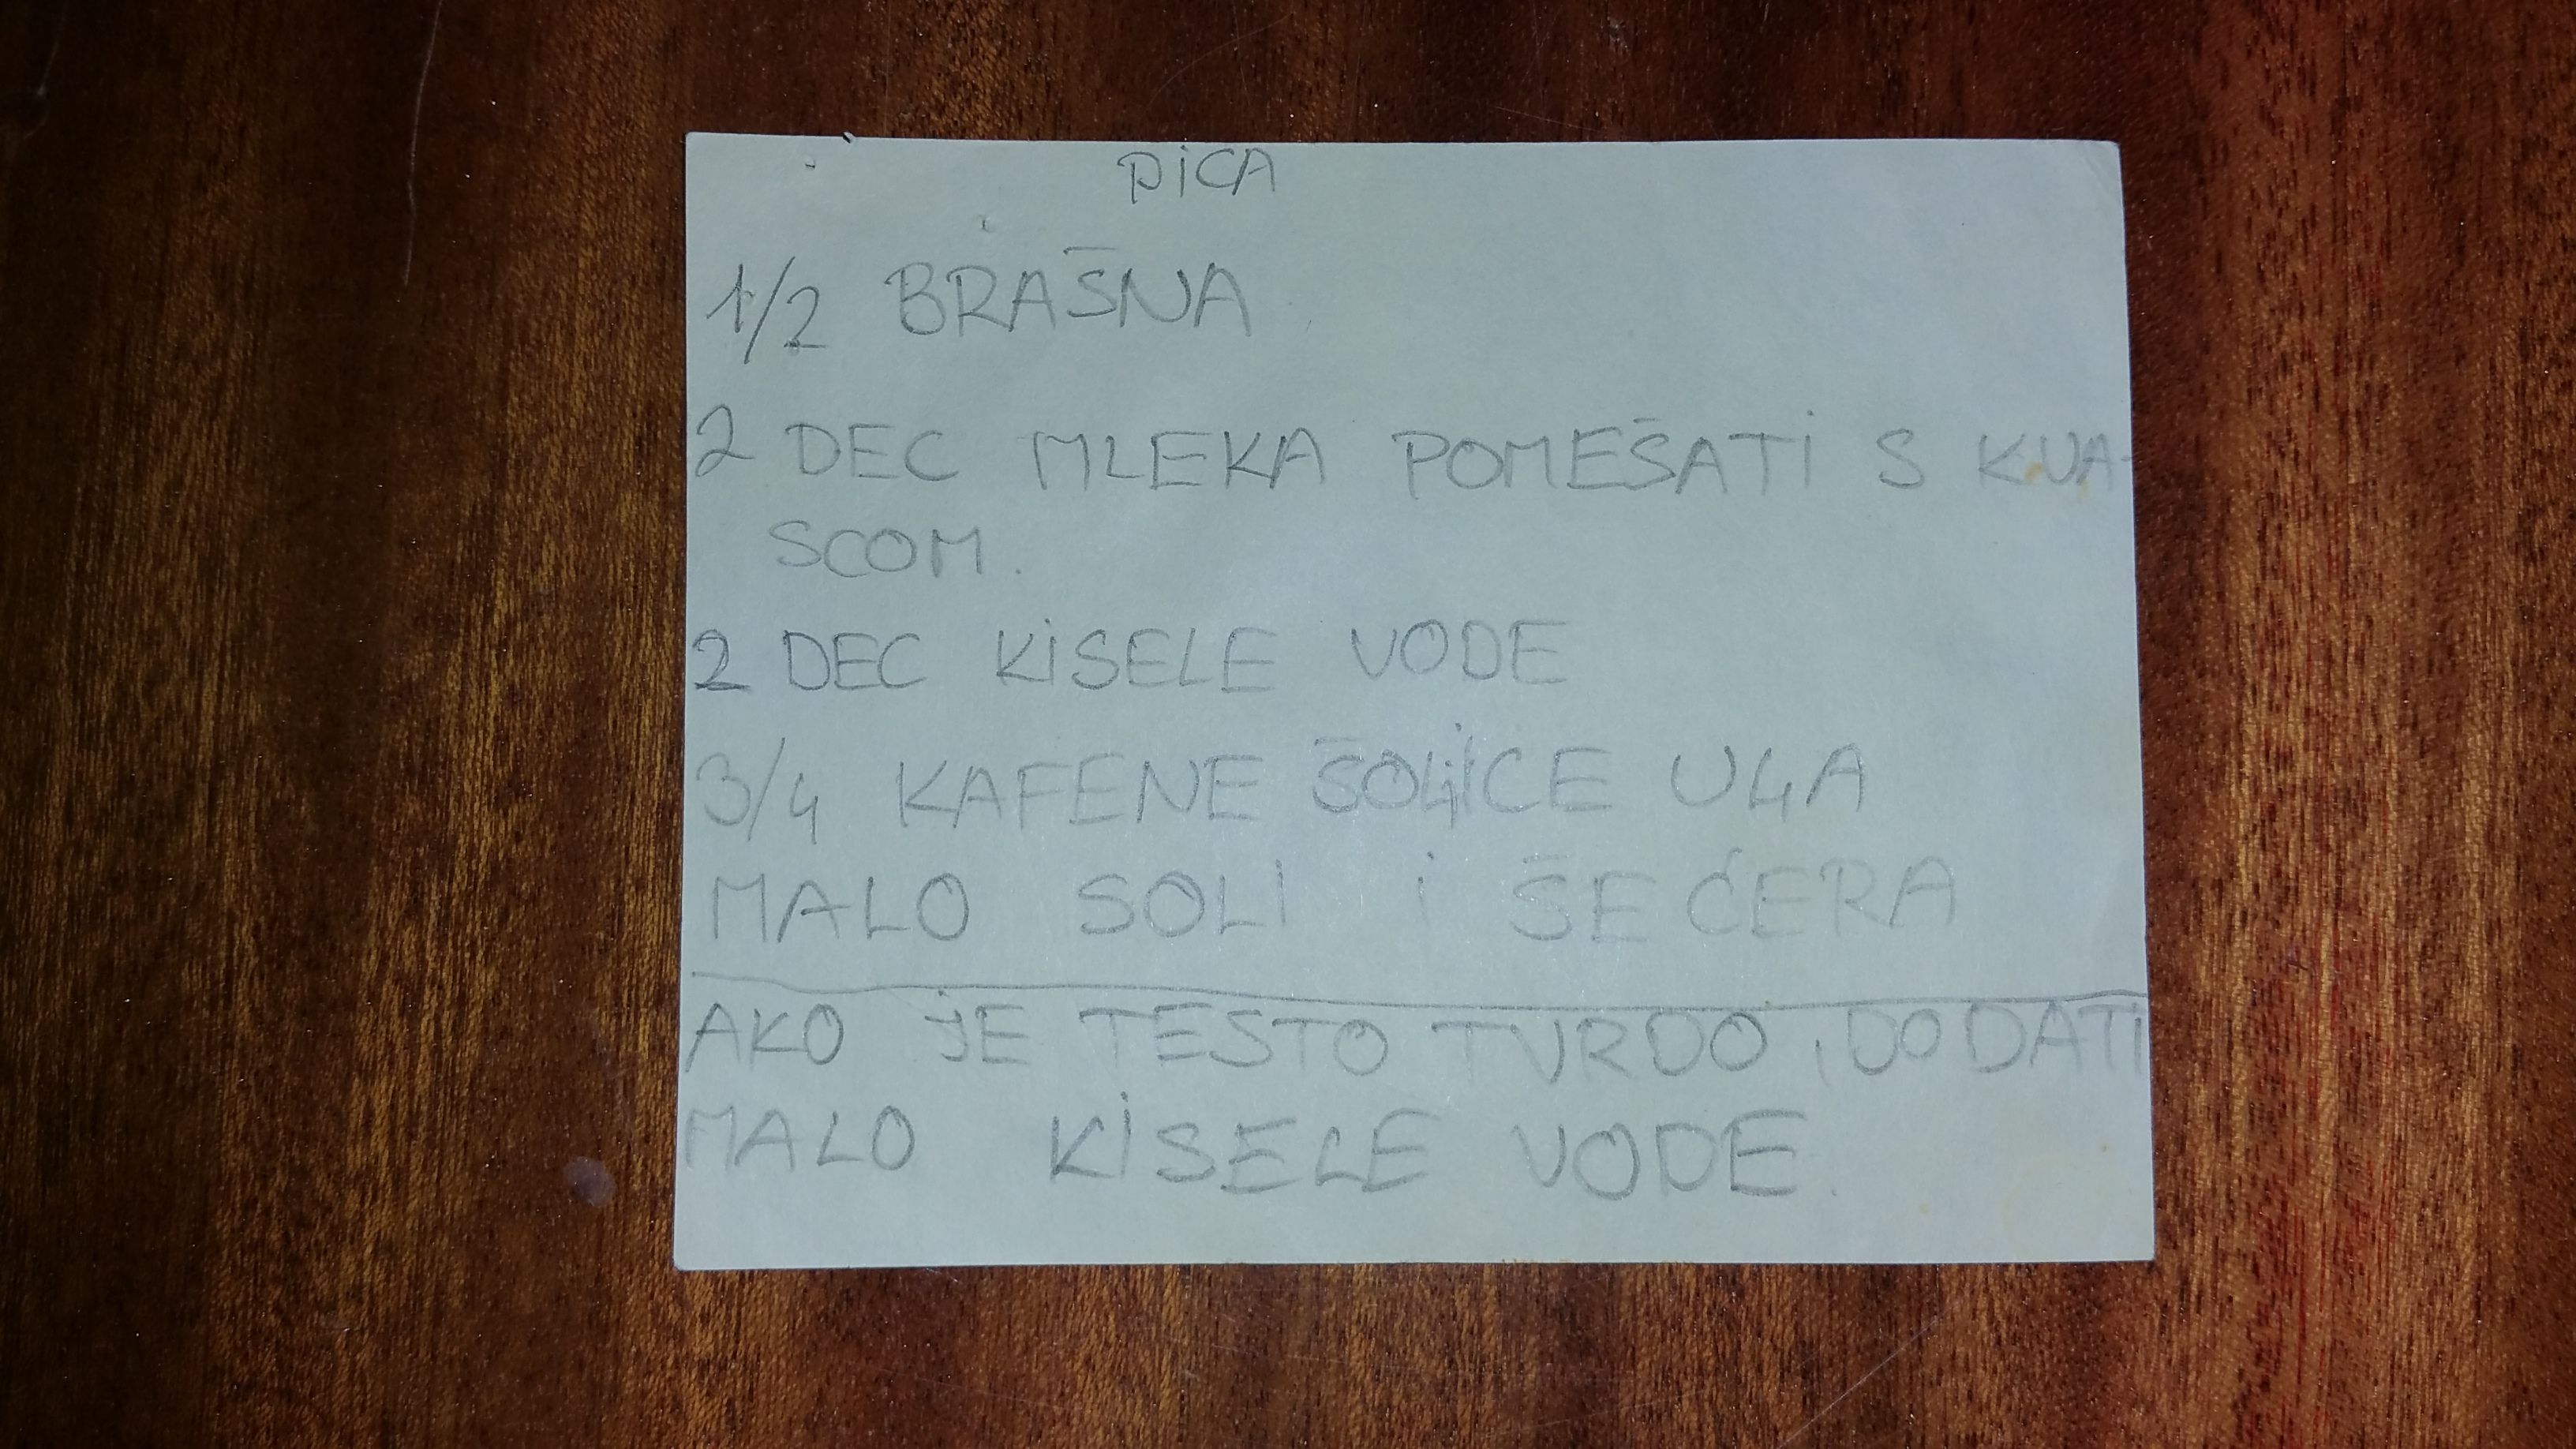 PiCA
1/2 BRAŠNA
2 DEC MLEKA POMEŠATi S KVA-
SCOM.
2 DEC KiSELE VODE
3/4 KAFENE ŠOLjiCE ULjA
MALO SOLi i ŠEĆERA
AKO jE TESTO TVRDO, DODATi
MALO KiSELE VODE.